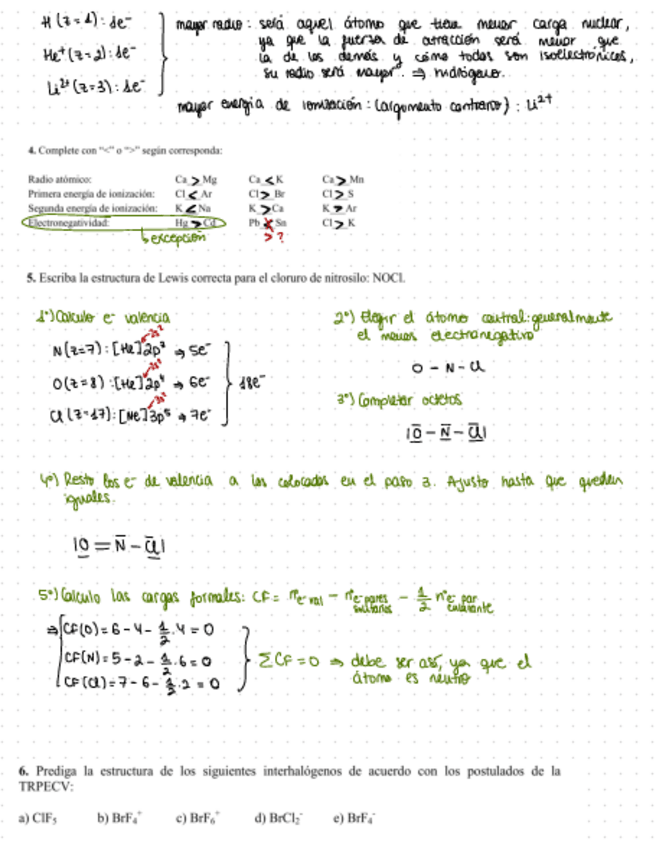 H (z=1): 1e⁻
He⁺ (z=2): 1e⁻
Li²⁺ (z=3): 1e⁻
mayor radio: será aquel átomo que tiene menor carga nuclear,
ya que la fuerza de atracción será menor que
la de los demás y cómo todos son isoelectrónicos,
su radio será mayor. ⇒ hidrógeno.
mayor energía de ionización: (argumento contrario): Li²⁺
4. Complete con "<" o ">" según corresponda:
Radio atómico: Ca > Mg Ca < K Ca > Mn
Primera energía de ionización: Cl < Ar Cl > Br Cl > S
Segunda energía de ionización: K < Na K > Ca K > Ar
Electronegatividad: Hg > Cd Pb < Sn Cl > K
↳ excepción > ?
5. Escriba la estructura de Lewis correcta para el cloruro de nitrosilo: NOCl.
1º) Calculo e⁻ valencia
2s²
N (z=7): [He] 2p³ → 5e⁻
2s²
O (z=8): [He] 2p⁴ → 6e⁻
3s²
Cl (z=17): [Ne] 3p⁵ → 7e⁻
18e⁻
2º) Elegir el átomo central: generalmente
el menos electronegativo
O – N – Cl
3º) Completar octetos
|O – N – Cl|
4º) Resto los e⁻ de valencia a los colocados en el paso 3. Ajusto hasta que queden
iguales.
|O = N – Cl|
5º) Calculo las cargas formales: CF = nºe⁻val – nºe⁻pares solitarios – 1/2 nºe⁻par enlazante
⇒ CF(O) = 6 – 4 – 1/2 · 4 = 0
CF(N) = 5 – 2 – 1/2 · 6 = 0
CF(Cl) = 7 – 6 – 1/2 · 2 = 0
ΣCF = 0 ⇒ debe ser así, ya que el
átomo es neutro
6. Prediga la estructura de los siguientes interhalógenos de acuerdo con los postulados de la
TRPECV:
a) ClF₅ b) BrF₄⁺ c) BrF₆⁺ d) BrCl₂⁻ e) BrF₄⁻